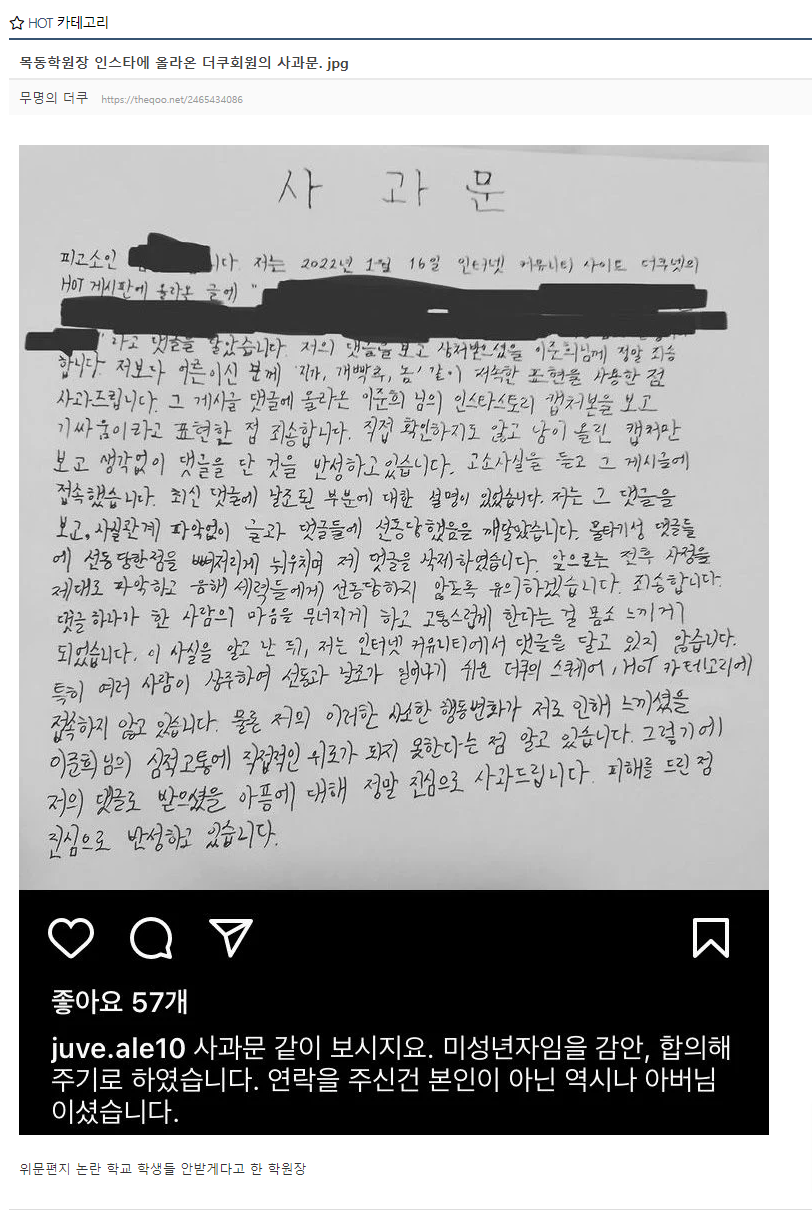 HOT 카테고리
목동학원장 인스타에 올라온 더쿠회원의 사과문. jpg
무명의 더쿠 https://theqoo.net/2465434086
사 과 문
피고소인 니다. 저는 2022년 1월 16일 인터넷 커뮤니티 사이트 더쿠넷의
HOT 게시판에 올라온 글에 "
"라고 댓글을 달았습니다. 저의 댓글을 보고 상처받으셨을 이준희님께 정말 죄송
합니다. 저보다 어른이신 분께 '지가, 개빡추, 놈' 같이 저속한 표현을 사용한 점
사과드립니다. 그 게시글 댓글에 올라온 이준희 님의 인스타스토리 캡처본을 보고
기싸움이라고 표현한 점 죄송합니다. 직접 확인하지도 않고 남이 올린 캡처만
보고 생각없이 댓글을 단 것을 반성하고 있습니다. 고소사실을 듣고 그 게시글에
접속했습니다. 최신 댓글에 날조된 부분에 대한 설명이 있었습니다. 저는 그 댓글을
보고, 사실관계 파악없이 글과 댓글들에 선동당했음을 깨달았습니다. 물타기성 댓글들
에 선동당한점을 뼈저리게 뉘우치며 제 댓글을 삭제하였습니다. 앞으로는 전후 사정을
제대로 파악하고 음해 세력들에게 선동당하지 않도록 유의하겠습니다. 죄송합니다.
댓글 하나가 한 사람의 마음을 무너지게 하고 고통스럽게 한다는 걸 몸소 느끼게
되었습니다. 이 사실을 알고 난 뒤, 저는 인터넷 커뮤니티에서 댓글을 달고 있지 않습니다.
특히 여러 사람이 상주하여 선동과 날조가 일어나기 쉬운 더쿠의 스퀘어, HOT 카테고리에
접속하지 않고 있습니다. 물론 저의 이러한 사소한 행동변화가 저로 인해 느끼셨을
이준희 님의 심적고통에 직접적인 위로가 되지 못한다는 점 알고 있습니다. 그렇기에
저의 댓글로 받으셨을 아픔에 대해 정말 진심으로 사과드립니다. 피해를 드린 점
진심으로 반성하고 있습니다.
좋아요 57개
juve.ale10 사과문 같이 보시지요. 미성년자임을 감안, 합의해
주기로 하였습니다. 연락을 주신건 본인이 아닌 역시나 아버님
이셨습니다.
위문편지 논란 학교 학생들 안받게다고 한 학원장